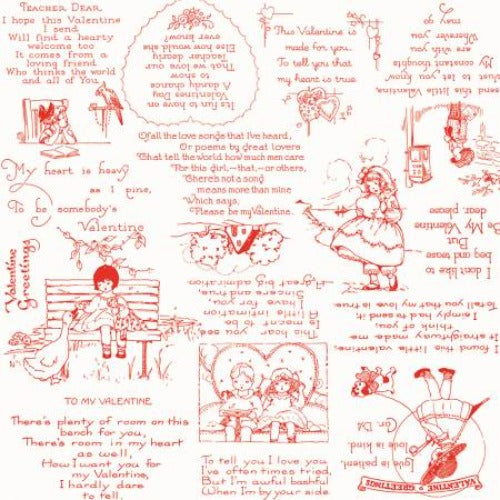 TEACHER DEAR
I hope this Valentine
I send
Will find a hearty
welcome too
It comes from a
loving friend
Who thinks the world
and all of You.
It's fun to have on
Valentines Day
A dandy chance
to show to
Teacher dearest
That we love our
Else how would she
ever know?
This Valentine is
made for you.
To tell you that
my heart is true.
Send this little Valentine,
Just to let you know
My constant thoughts
are with you
Wherever you
may go
Of all the love songs that I've heard,
Or poems by great lovers
What tell the world how much men care
For this girl,—that,—or others,
There's not a song
means more than mine
Which says,
Please be my Valentine.
My heart is heavy
as I pine,
To be somebody's
Valentine
Valentine
Greetings
I don't like to
beg and tease
But
Be My Valentine
dear please
This heart, you see
Is meant to be
A little intimation
I have for you,
Sincere and true,
A great big admiration
I found this little valentine,
It straightway made me
think of you,
I simply had to send it
I tell you that my love is true.
TO MY VALENTINE
There's plenty of room on this
bench for you,
There's room in my heart
as well,
How I want you for
my Valentine,
I hardly dare
to tell.
To tell you I love you
I've often times tried,
But I'm awful bashful
When I'm by your side
Love is patient,
love is kind.
Cor. 13:4
VALENTINE GREETINGS